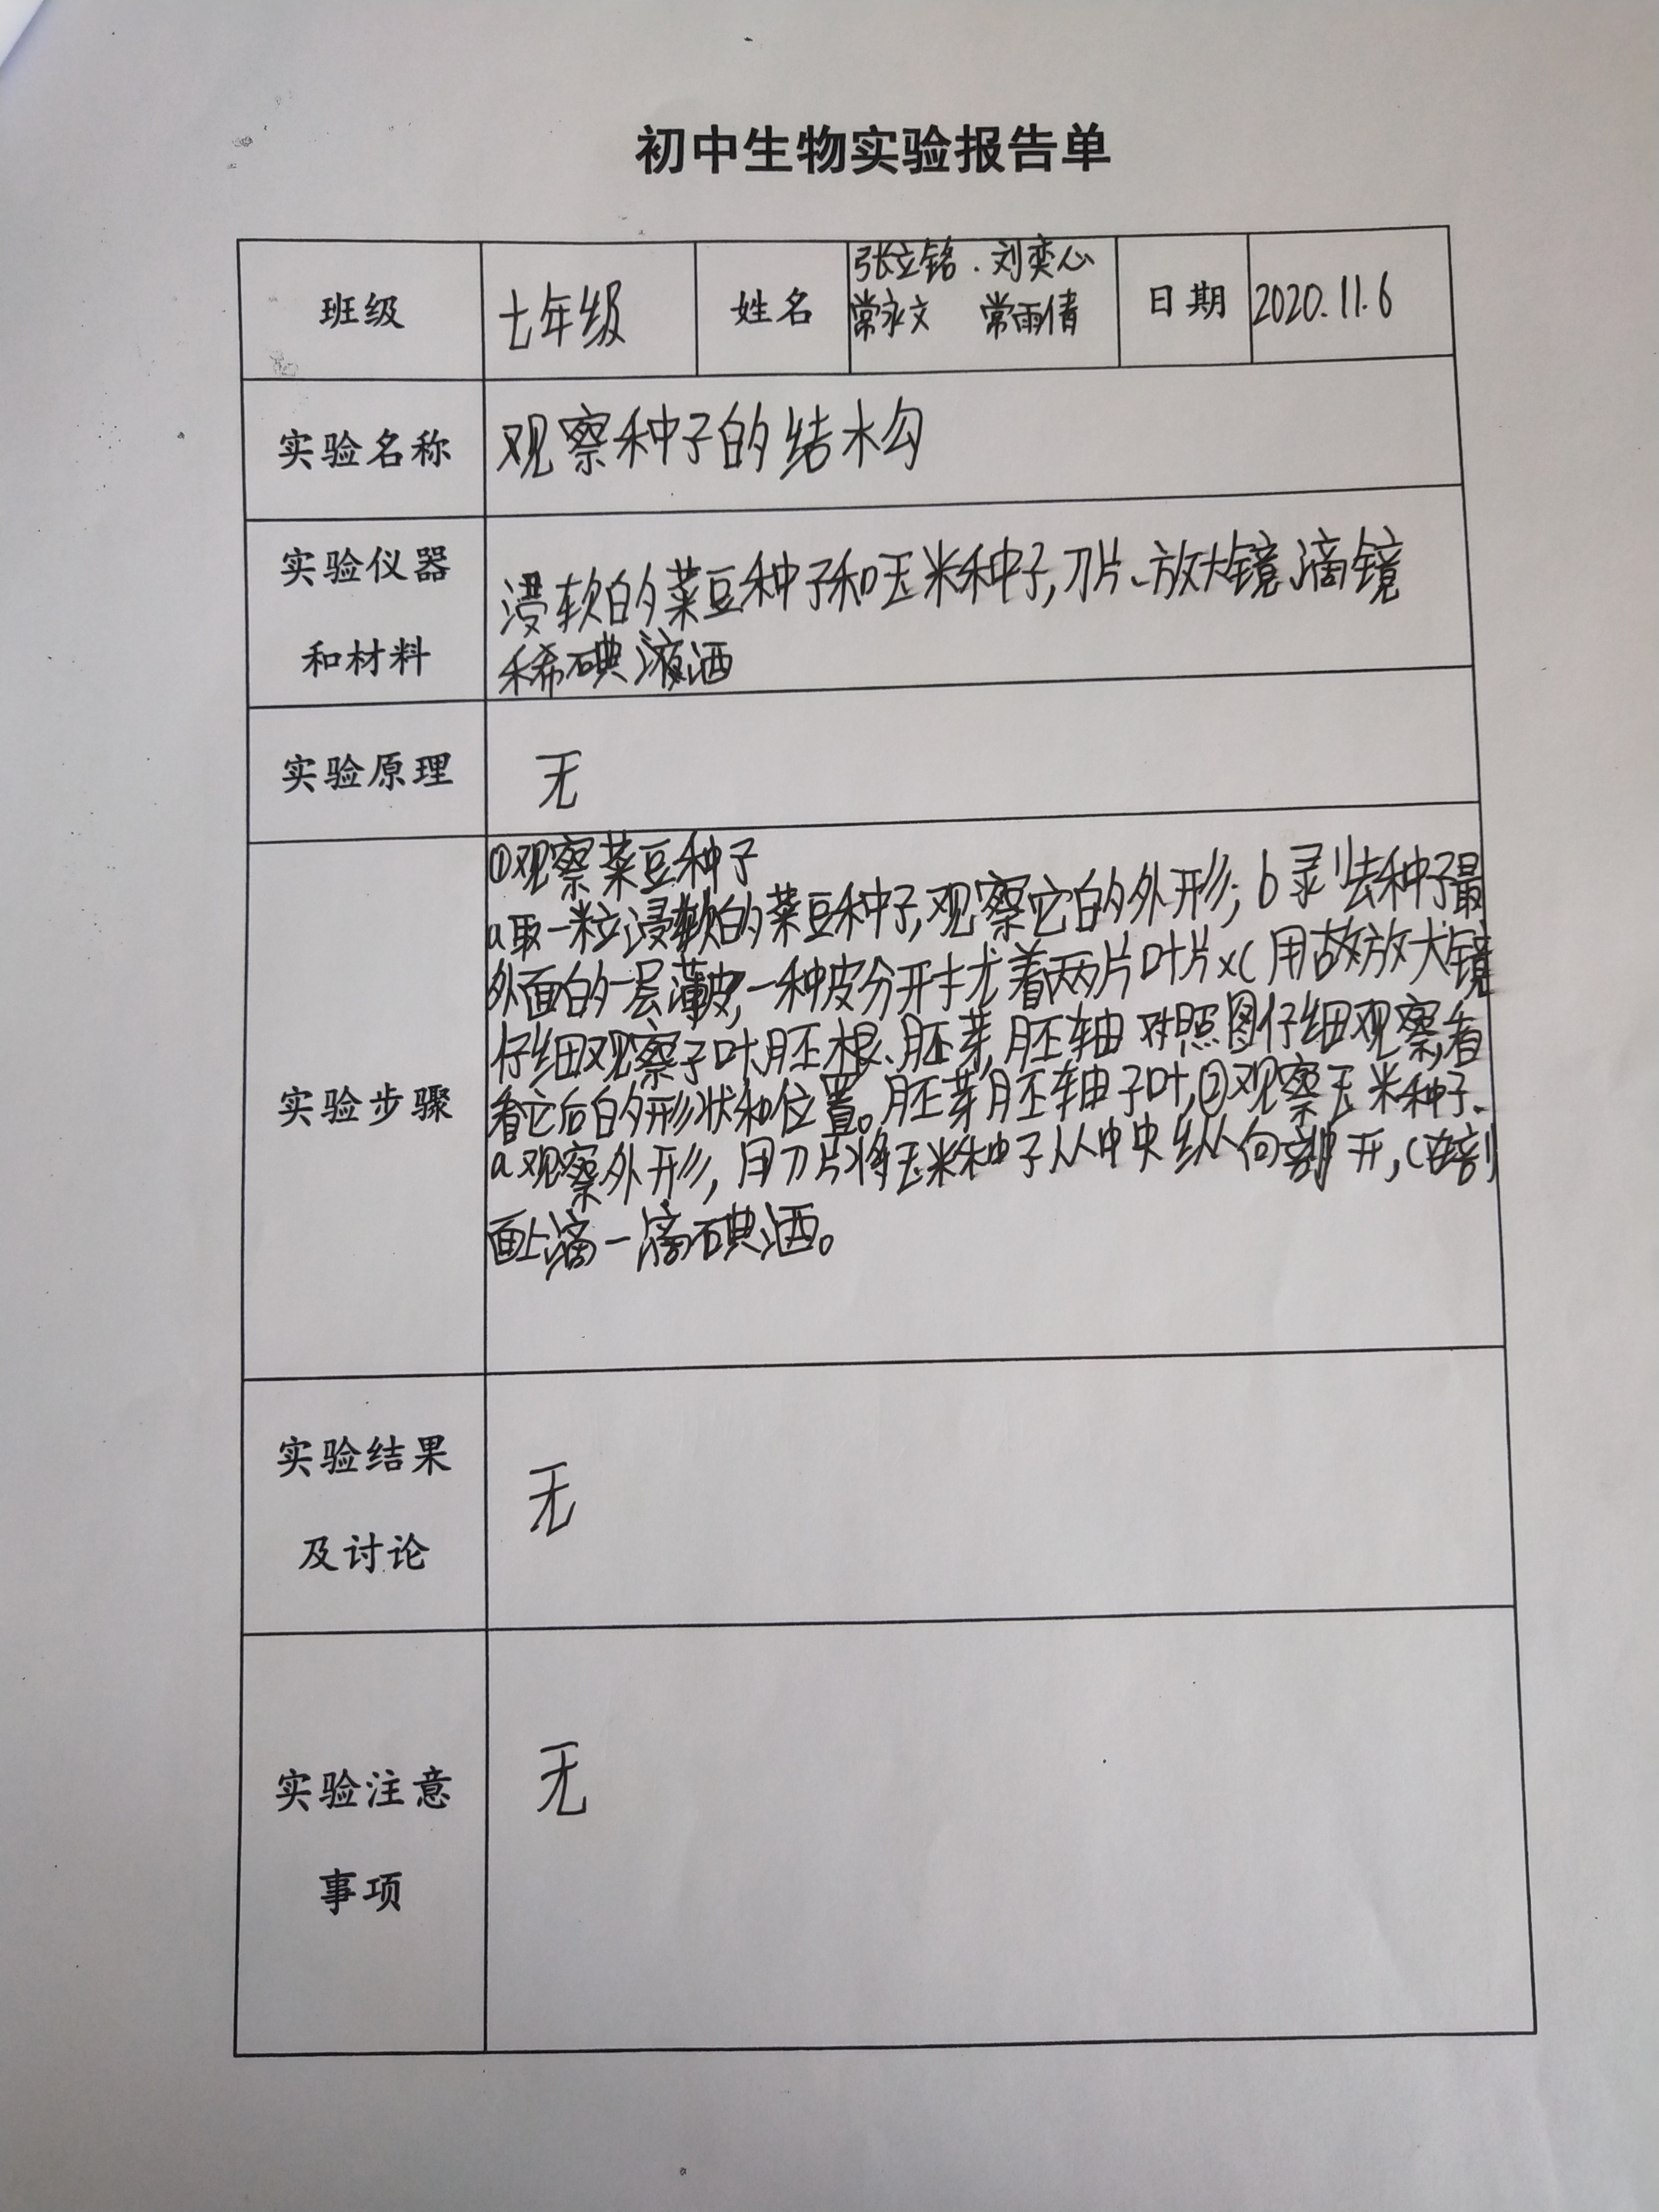 初中生物实验报告单
班级
七年级
姓名
张立铭．刘奕心
常永文 常雨倩
日期
2020.11.6
实验名称
观察种子的结构
实验仪器
和材料
浸软的菜豆种子和玉米种子,刀片、放大镜、滴镜
稀碘液酒
实验原理
无
实验步骤
①观察菜豆种子
a取一粒浸软的菜豆种子,观察它的外形; b剥去种子最
外面的一层薄皮,一种皮分开着两片叶片 c用放大镜
仔细观察子叶、胚根、胚芽,胚轴 对照图仔细观察,看
看它后的形状和位置。胚芽胚轴子叶,②观察玉米种子、
a观察外形, 用刀片将玉米种子从中央纵向剖开, c在剖
面上滴一滴碘酒。
实验结果
及讨论
无
实验注意
事项
无